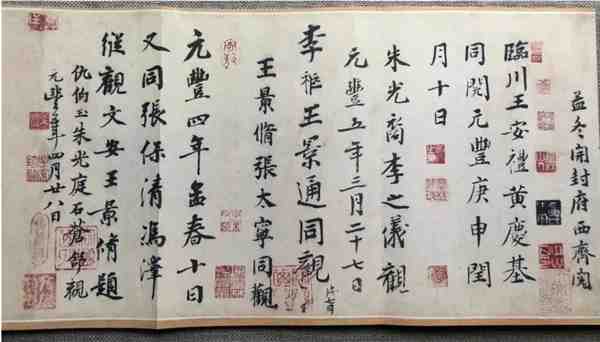 益柔開封府西齋閱
臨川王安禮黃慶基
同閱元豐庚申閏
月十日
朱光裔李之儀觀
元豐五年三月二十七日
李秬王景通同觀
王景脩張太寧同觀
元豐四年孟春十日
又同張保清馮澤
縱觀文安王景脩題
仇伯玉朱光庭石蒼舒觀
元豐五年四月廿八日